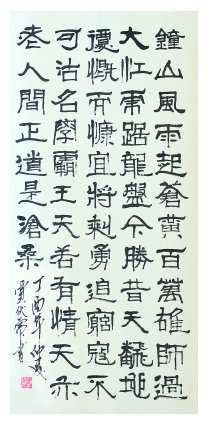 鐘山風雨起蒼黃百萬雄師過
大江虎踞龍盤今勝昔天翻地
覆慨而慷宜將剩勇追窮寇不
可沽名學霸王天若有情天亦
老人間正道是滄桑
丁酉年仲
書